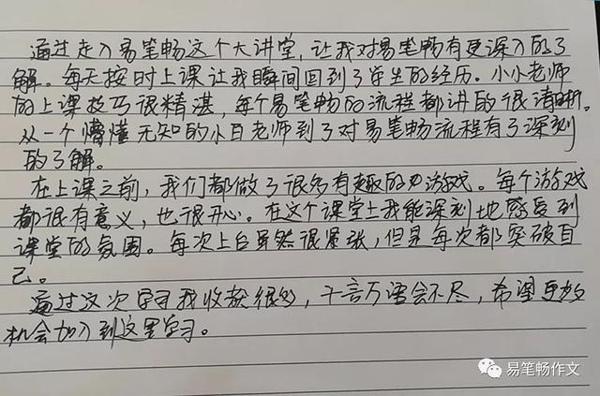 通过走入易笔畅这个大讲堂，让我对易笔畅有更深入的了
解。每天按时上课让我瞬间回到了学生的经历。小小老师
的上课技巧很精湛，每个易笔畅的流程都讲的很清晰。
从一个懵懂无知的小白老师到了对易笔畅流程有了深刻
的了解。
在上课之前，我们都做了很多有趣的游戏。每个游戏
都很有意义，也很开心。在这个课堂上我能深刻地感受到
课堂的氛围。每次上台虽然很紧张，但是每次都突破自
己。
通过这次学习我收获很多，千言万语会不尽，希望更多
机会加入到这里学习。
易笔畅作文